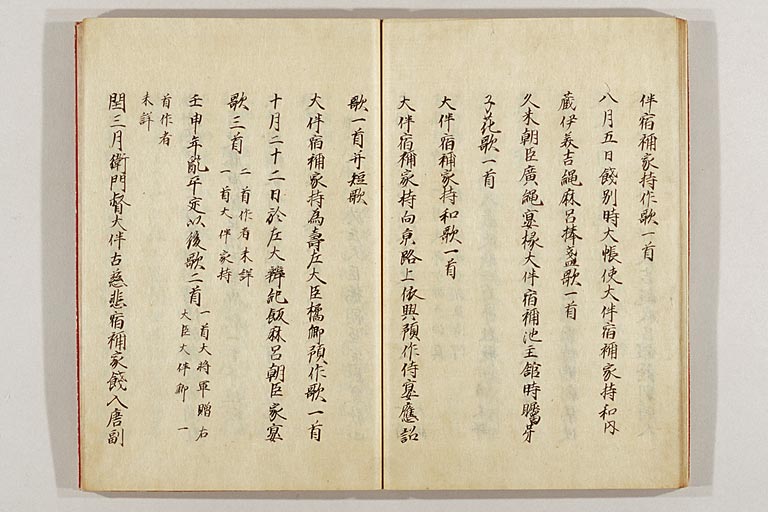 伴宿祢家持作歌一首
八月五日餞別時大帳使大伴宿祢家持和内
蔵伊美吉縄麻呂捧盞歌一首
久米朝臣廣縄宴椽大伴宿祢池主舘時矚芽
子花歌一首
大伴宿祢家持和歌一首
大伴宿祢家持向京路上依興預作侍宴應詔
歌一首并短歌
大伴宿祢家持為壽左大臣橘卿預作歌一首
十月二十二日於左大辨紀飯麻呂朝臣家宴
歌三首 二首作者未詳
一首大伴家持
壬申年亂平定以後歌二首 一首大将軍贈右
大臣大伴卿 一
首作者
未詳
閏三月衛門督大伴古慈悲宿祢家餞入唐副